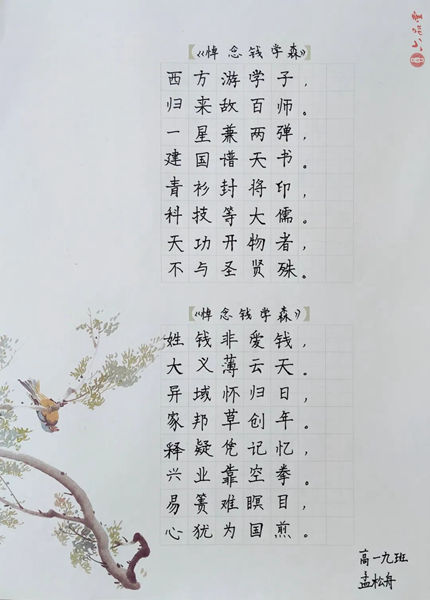 六品堂
【《悼念钱学森》】
西方游学子，
归来敌百师。
一星兼两弹，
建国谱天书。
青衫封将印，
科技等大儒。
天功开物者，
不与圣贤殊。
【《悼念钱学森》】
姓钱非爱钱，
大义薄云天。
异域怀归日，
家邦草创年。
释疑凭记忆，
兴业靠空拳。
易箦难瞑目，
心犹为国煎。
高一九班
孟松舟